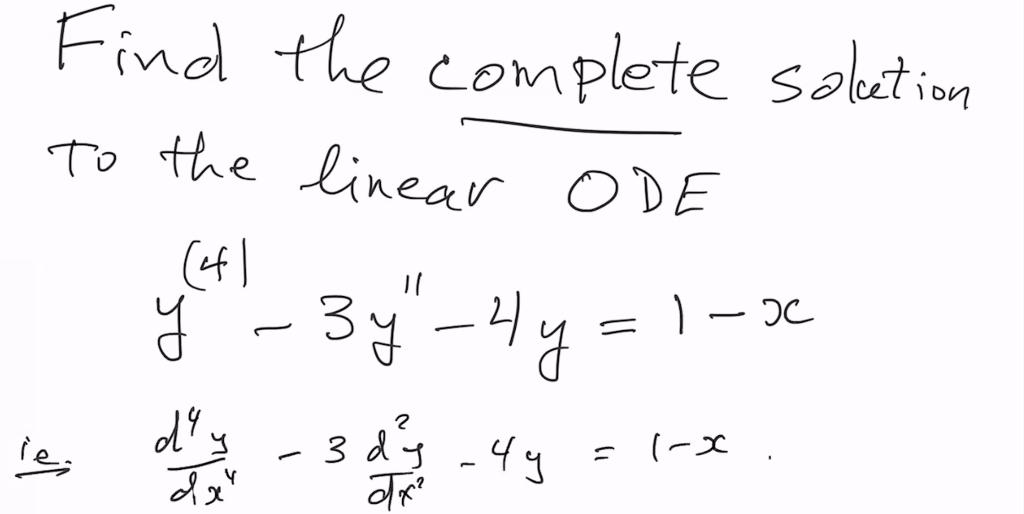 Find the complete solution
to the linear ODE
y⁽⁴⁾ - 3y'' - 4y = 1 - x
ie. d⁴y/dx⁴ - 3 d²y/dx² - 4y = 1-x.